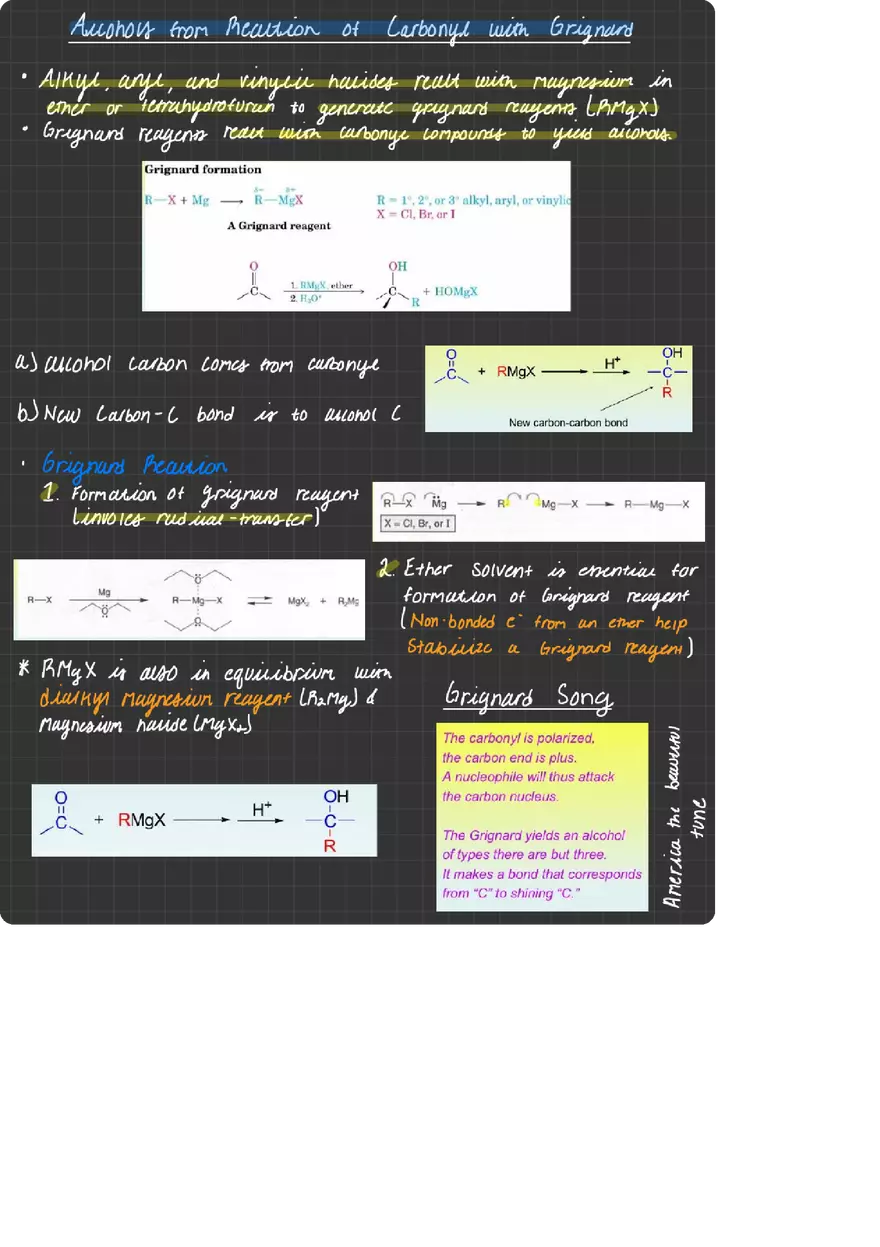 Alcohols from Reaction of Carbonyl with Grignard
• Alkyl, aryl, and vinylic halides react with magnesium in
ether or tetrahydrofuran to generate grignard reagents (RMgX)
• Grignard reagents react with carbonyl compounds to yield alcohols.
Grignard formation
R—X + Mg → R—MgX
δ− δ+
R = 1°, 2°, or 3° alkyl, aryl, or vinylic
X = Cl, Br, or I
A Grignard reagent
O
C
1. RMgX, ether
2. H₃O⁺
OH
C
R
+ HOMgX
a) alcohol carbon comes from carbonyl
O
C
+ RMgX
H⁺
OH
—C—
R
New carbon-carbon bond
b) New Carbon-C bond is to alcohol C
• Grignard Reaction
1. Formation of grignard reagent
(involes radical-transfer)
R—X Mg → R Mg—X → R—Mg—X
X = Cl, Br, or I
R—X
Mg
O
O
R—Mg—X
O
MgX₂ + R₂Mg
2. Ether solvent is essential for
formation of Grignard reagent
(Non-bonded e⁻ from an ether help
stabilize a Grignard reagent)
* RMgX is also in equilibrium with
dialkyl magnesium reagent (R₂Mg) &
magnesium halide (MgX₂)
O
C
+ RMgX
H⁺
OH
—C—
R
Grignard Song
The carbonyl is polarized,
the carbon end is plus.
A nucleophile will thus attack
the carbon nucleus.
The Grignard yields an alcohol
of types there are but three.
It makes a bond that corresponds
from “C” to shining “C.”
America the beautiful
tune